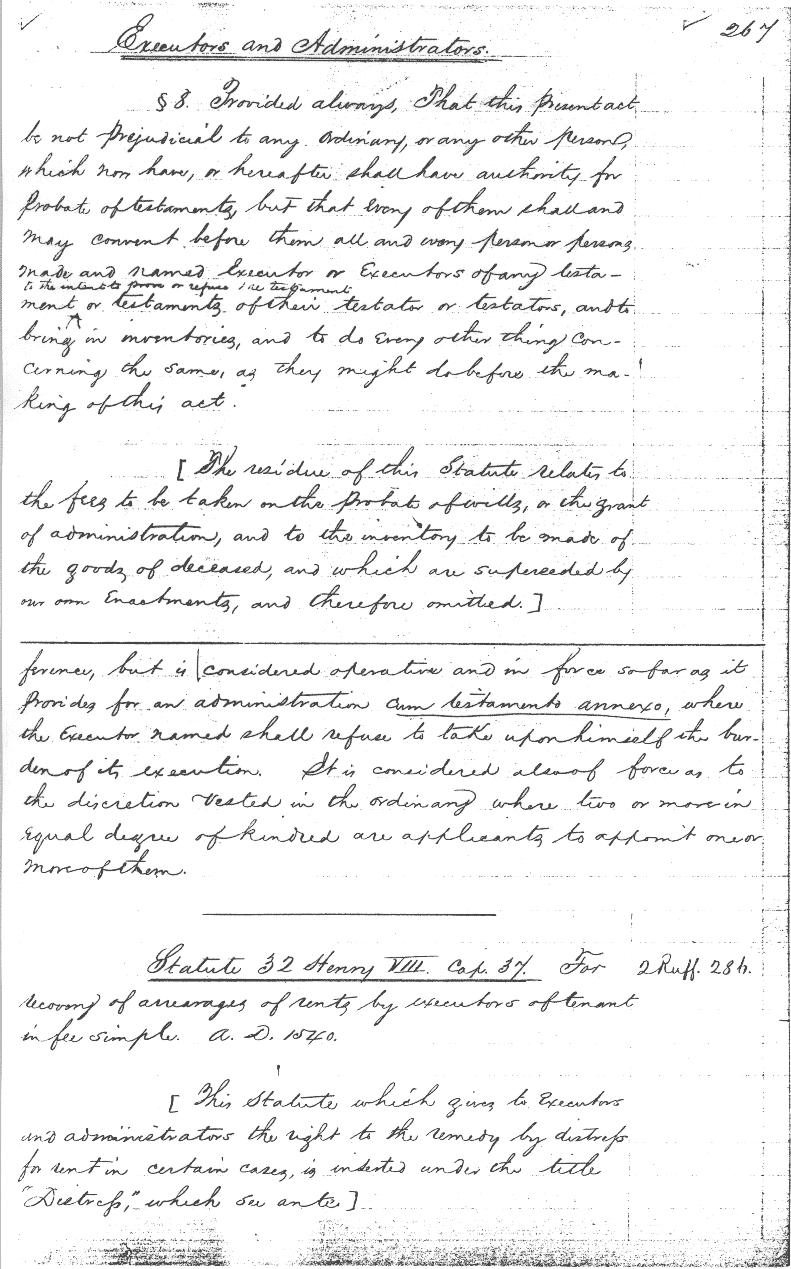 267
Executors and Administrators.
§ 8. Provided always, That this present act
be not prejudicial to any ordinary, or any other person,
which now have, or hereafter shall have authority for
probate of testaments, but that every of them shall and
may convent before them all and every person or persons
made and named Executor or Executors of any testa-
to the intent to prove or refuse the testament
ment or testaments of their testator or testators, and to
bring in inventories, and to do every other thing con-
cerning the same, as they might do before the ma-
king of this act.
[The residue of this Statute relates to
the fees to be taken on the probate of wills, or the grant
of administration, and to the inventory to be made of
the goods of deceased, and which are superseded by
our own Enactments, and therefore omitted.]
ference, but is considered operative and in force so far as it
provides for an administration cum testamento annexo, where
the Executor named shall refuse to take upon himself the bur-
den of its execution. It is considered also of force as to
the discretion vested in the ordinary where two or more in
equal degree of kindred are applicants to appoint one or
more of them.
Statute 32 Henry VIII. Cap. 37. For 2 Ruff. 286.
recovery of arrearages of rents by executors of tenant
in fee simple. A. D. 1540.
[This Statute which gives to Executors
and administrators the right to the remedy by distress
for rent in certain cases, is inserted under the title
"Distress," which see ante]